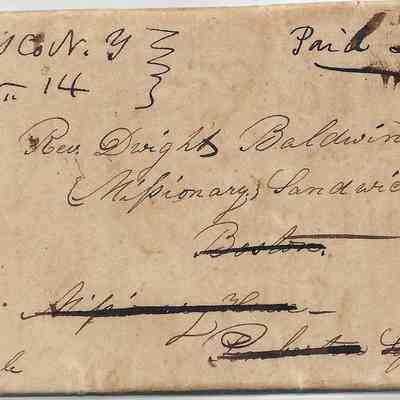 Co N. Y
14 Paid
Rev. Dwight Baldwin
(Missionary) Sandwic
Boston.
Missionary House
Pemberton